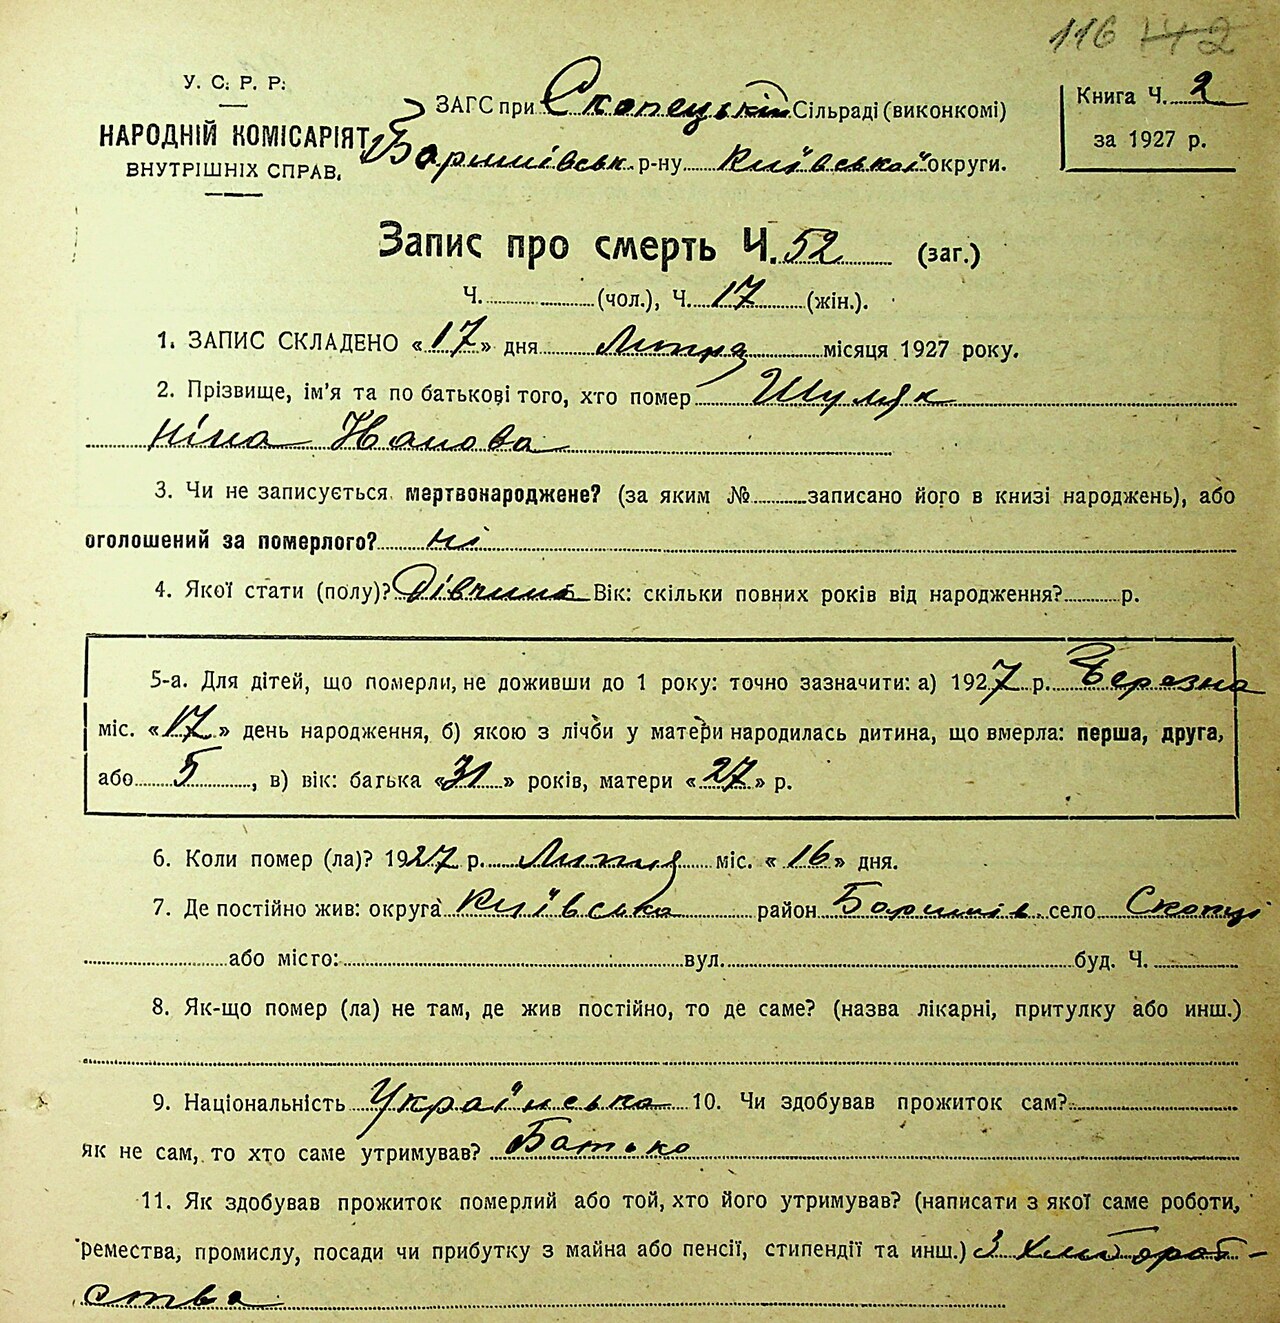 116 142
У. С. Р. Р.
НАРОДНІЙ КОМІСАРІЯТ
ВНУТРІШНІХ СПРАВ.
ЗАГС при Скопецькій Сільраді (виконкомі)
Баришівськ. р-ну Київської округи.
Книга Ч. 2
за 1927 р.
Запис про смерть Ч. 52 (заг.)
Ч. (чол.), Ч. 17 (жін.).
1. ЗАПИС СКЛАДЕНО «17» дня Липня місяця 1927 року.
2. Прізвище, ім'я та по батькові того, хто помер Шуляк
Ніна Иванова
3. Чи не записується мертвонароджене? (за яким № записано його в книзі народжень), або
оголошений за померлого? ні
4. Якої стати (полу)? Дівчина Вік: скільки повних років від народження? р.
5-а. Для дітей, що померли, не доживши до 1 року: точно зазначити: а) 1927 р. Березня
міс. «17» день народження, б) якою з лічби у матери народилась дитина, що вмерла: перша, друга,
або 5, в) вік: батька «31» років, матери «27» р.
6. Коли помер (ла)? 1927 р. Липня міс. «16» дня.
7. Де постійно жив: округа Київська район Баришів. село Скопці
або місто: вул. буд. Ч.
8. Як-що помер (ла) не там, де жив постійно, то де саме? (назва лікарні, притулку або инш.)
9. Національність Українська 10. Чи здобував прожиток сам?
як не сам, то хто саме утримував? Батько
11. Як здобував прожиток померлий або той, хто його утримував? (написати з якої саме роботи,
ремества, промислу, посади чи прибутку з майна або пенсії, стипендії та инш.) З хлібороб-
ства